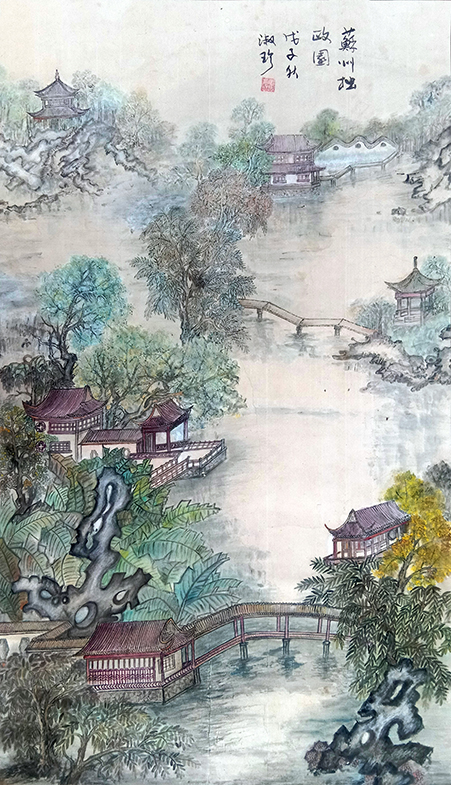 蘇州拙
政園
戊子秋
淑珍